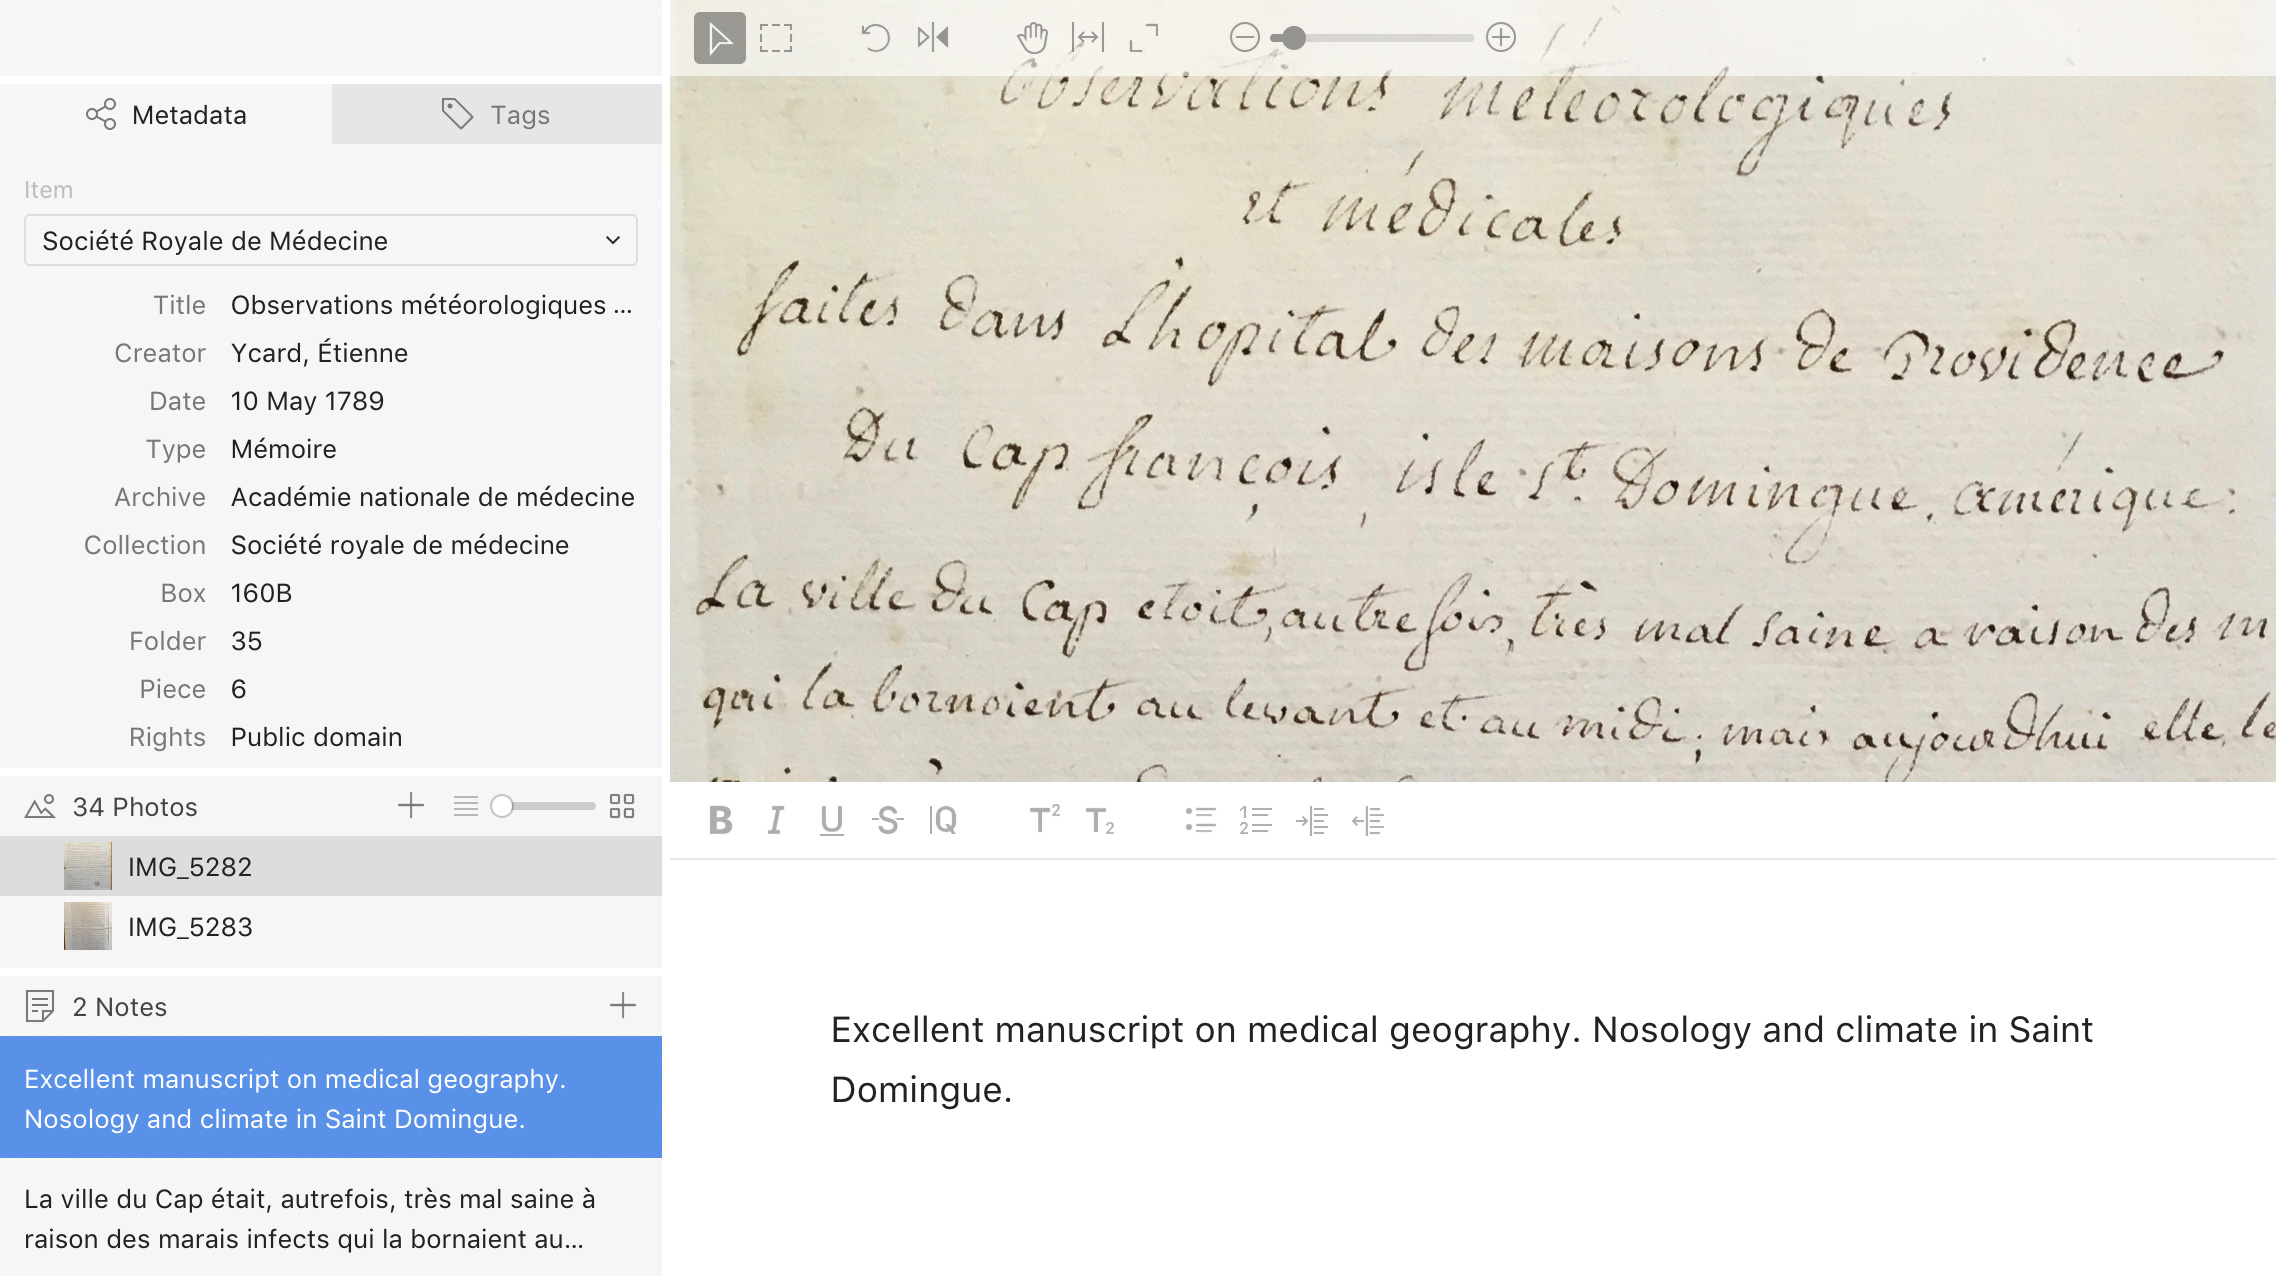 Metadata
Tags
Item
Société Royale de Médecine
Title Observations météorologiques ...
Creator Ycard, Étienne
Date 10 May 1789
Type Mémoire
Archive Académie nationale de médecine
Collection Société royale de médecine
Box 160B
Folder 35
Piece 6
Rights Public domain
34 Photos
IMG_5282
IMG_5283
2 Notes
Excellent manuscript on medical geography.
Nosology and climate in Saint Domingue.
La ville du Cap était, autrefois, très mal saine à
raison des marais infects qui la bornaient au...
Observations météorologiques
et médicales
faites dans L'hopital des maisons de Providence
Du Cap françois, isle St. Domingue, amérique:
La ville du Cap etoit, autrefois, très mal saine a raison des m
qui la bornoient au levant et au midi; mais aujourdhui elle le
B I U S Q T2 T2
Excellent manuscript on medical geography. Nosology and climate in Saint
Domingue.